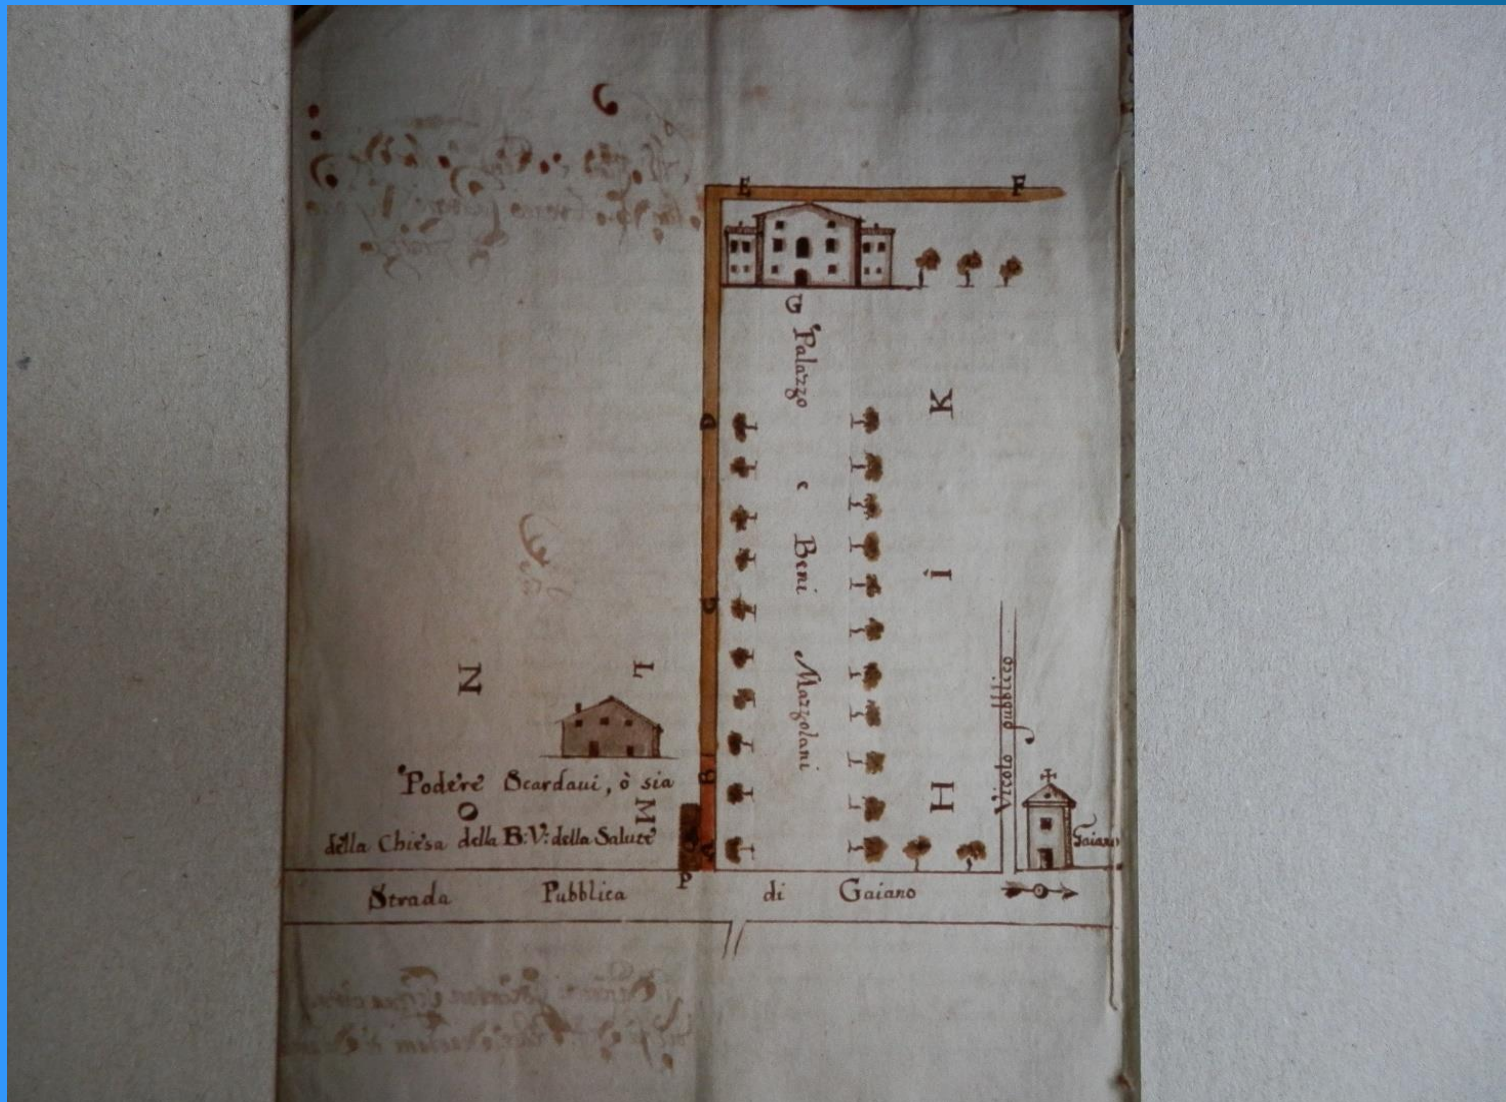 E
F
G
Palazzo e Beni Mazzolani
D
C
K
I
H
N
L
Podere Scardavi, ò sia
O
M
della Chiesa della B: V: della Salute
B
A
P
Vicolo pubblico
Gaiano
Strada Pubblica di Gaiano